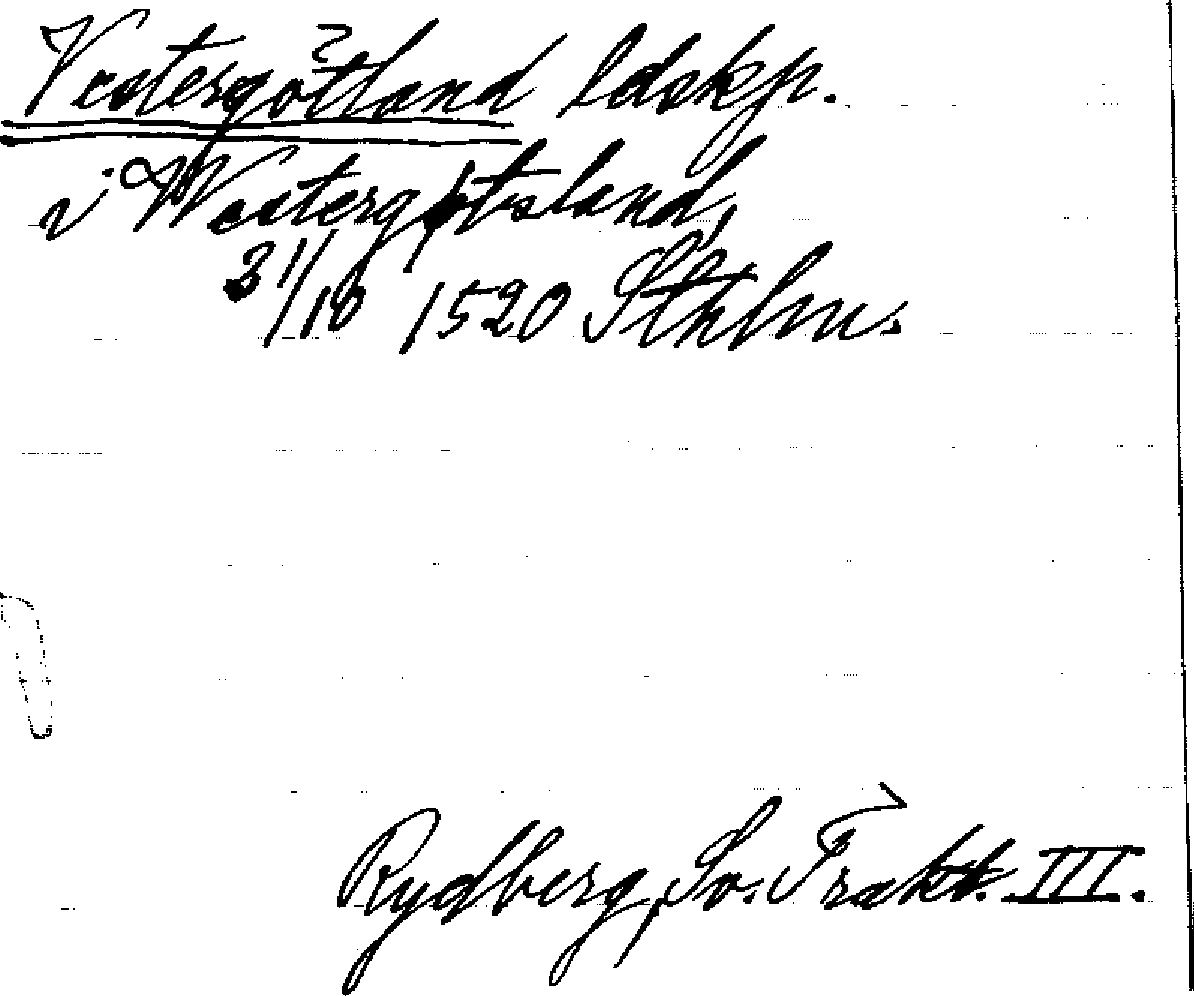 Vestergötland ldskp.
i Westergötsland,
31/10 1520 Sthlm.
Rydberg, Sv. Trakt. III.